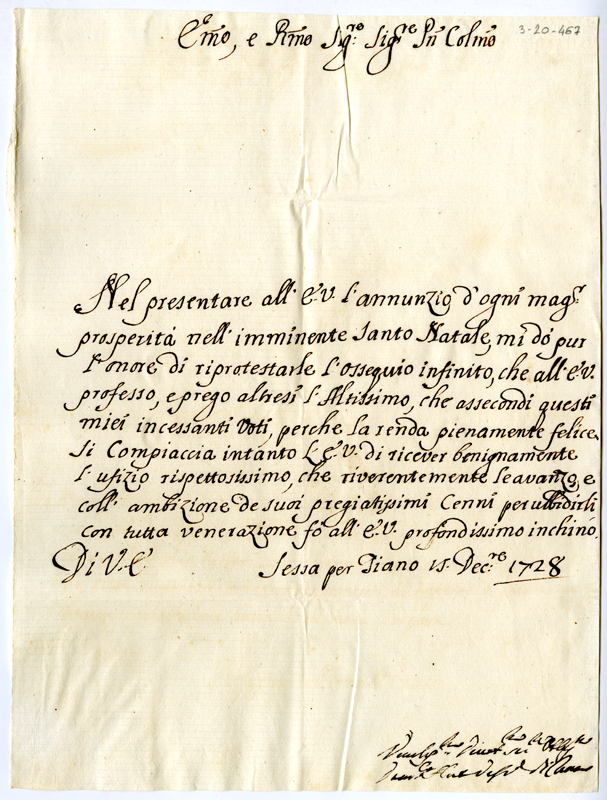 Emo, e Rmo Sigre Sigre Pn Colmo
3-20-467
Nel presentare all' E.V. l'annunzio d'ogni magr
prosperità nell' imminente Santo Natale, mi dò pur
l'onore di riprotestarle l'ossequio infinito, che all' E.V.
professo, e prego altresì l'Altissimo, che assecondi questi
miei incessanti voti, perche la renda pienamente felice.
Si Compiaccia intanto l'E.V. di ricever benignamente
l'ufizio rispettosissimo, che riverentemente le avanzo, e
coll' ambizione de suoi pregiatissimi Cenni per ubbidirli
con tutta venerazione fo all' E.V. profondissimo inchino.
Di V.E. Sessa per Tiano 15 Decre 1728